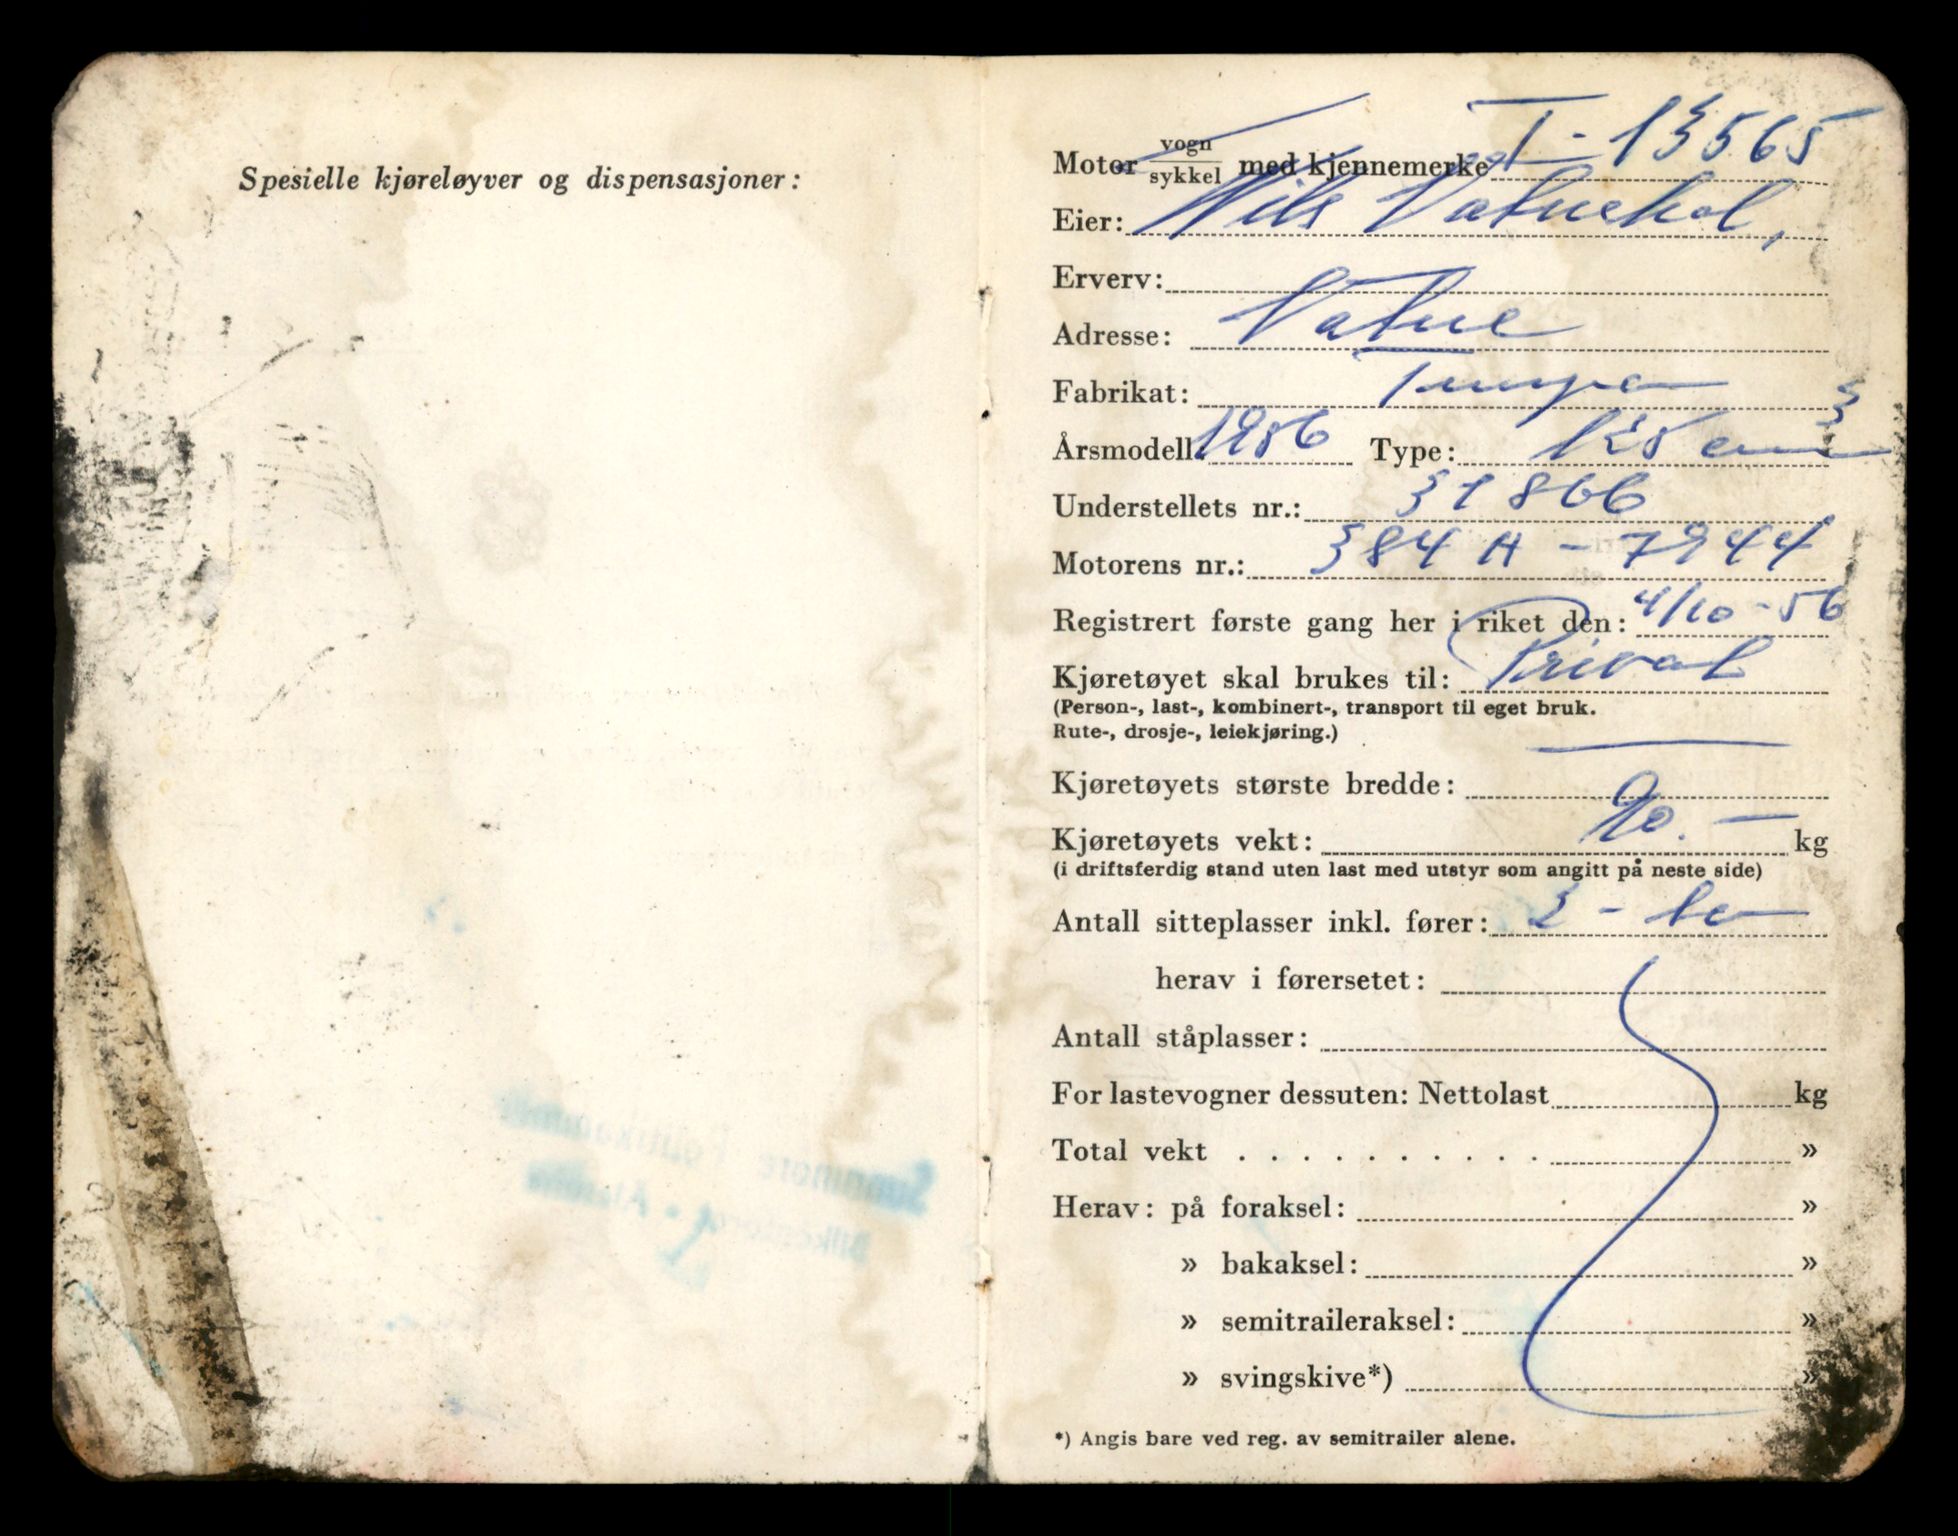 Spesielle kjøreløyver og dispensasjoner:
Motor vogn/sykkel med kjennemerke T-13565
Eier: Nils Vatnehol,
Erverv:
Adresse: Vatne
Fabrikat: Tempo
Årsmodell: 1956 Type: 125 cm3
Understellets nr.: 31866
Motorens nr.: 384 H - 7944
Registrert første gang her i riket den: 4/10-56
Kjøretøyet skal brukes til: Privat
(Person-, last-, kombinert-, transport til eget bruk.
Rute-, drosje-, leiekjøring.)
Kjøretøyets største bredde:
Kjøretøyets vekt: 90.- kg
(i driftsferdig stand uten last med utstyr som angitt på neste side)
Antall sitteplasser inkl. fører: 2 - to
herav i førersetet:
Antall ståplasser:
For lastevogner dessuten: Nettolast kg
Total vekt . . . . . . . . . . »
Herav: på foraksel: »
» bakaksel: »
» semitraileraksel: »
» svingskive*) »
*) Angis bare ved reg. av semitrailer alene.